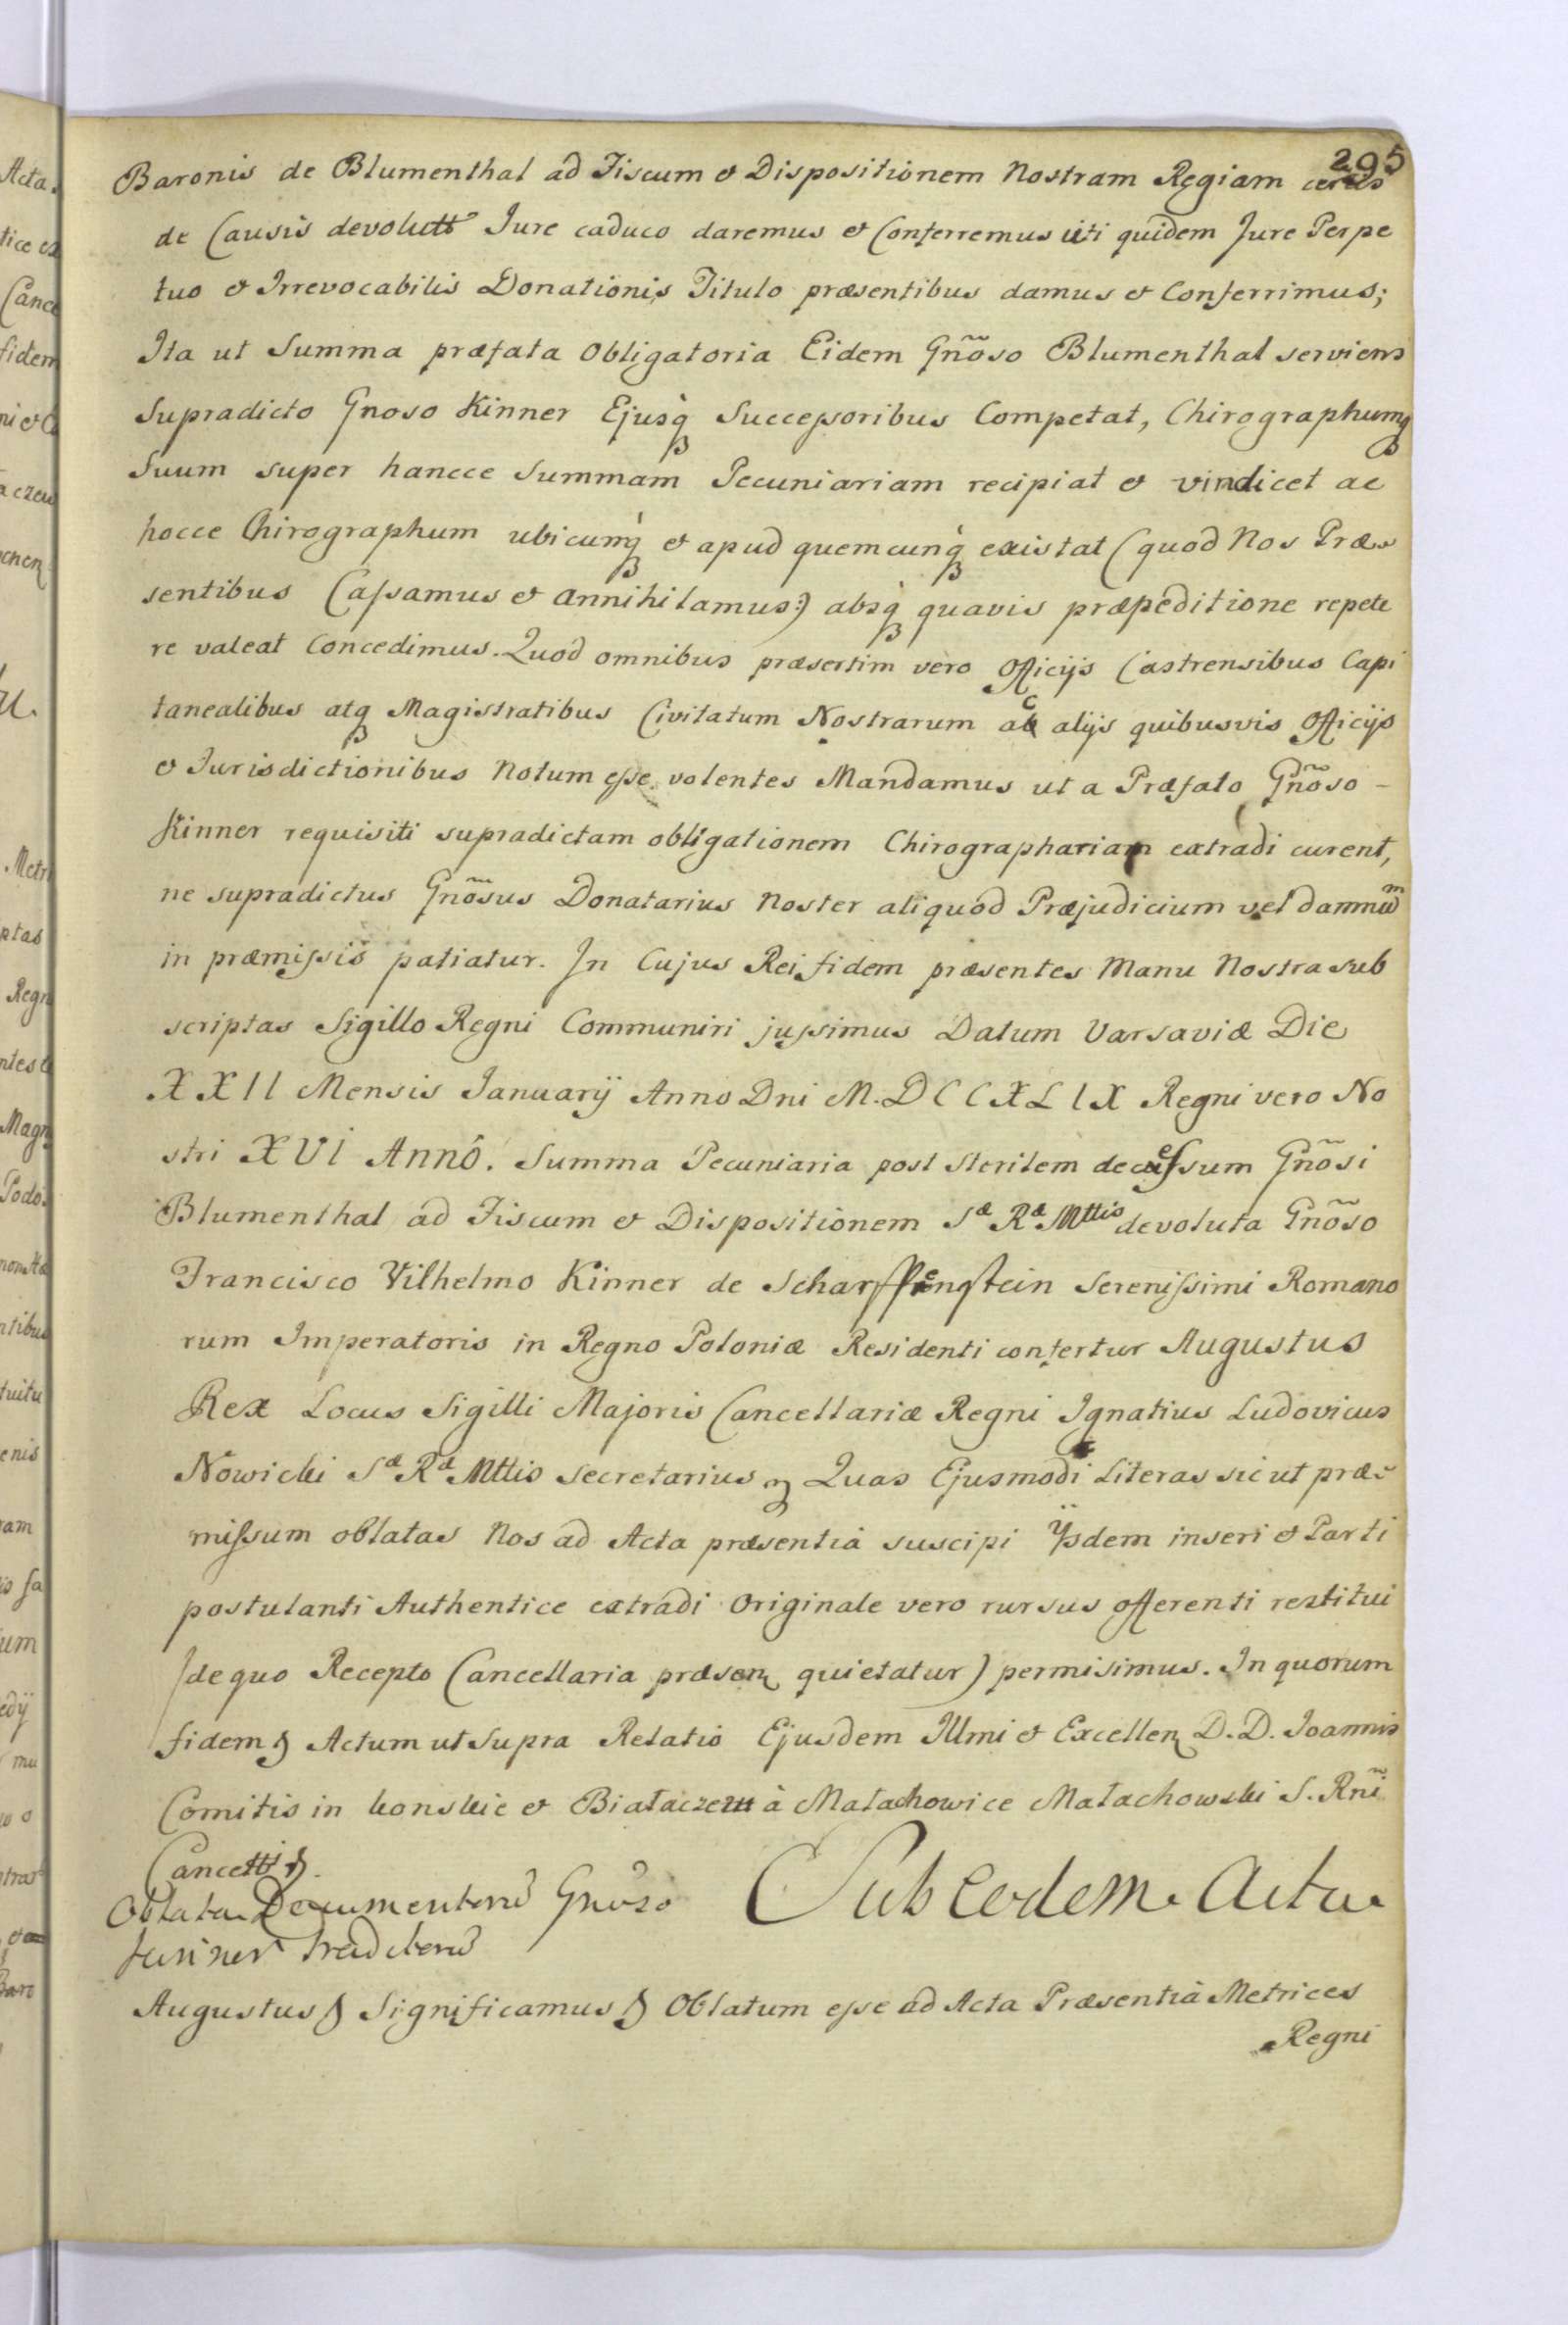 295
Baronis de Blumenthal ad Fiscum & Dispositionem Nostram Regiam certis
de Causis devolutt Jure caduco daremus & Conferremus uti quidem Jure Perpe
tuo & Irrevocabilis Donationis Titulo præsentibus damus & Conferrimus;
Ita ut Summa præfata Obligatoria Eidem Gñoso Blumenthal serviens
Supradicto Gnoso Kinner Ejusq̀ Successoribus Competat, Chirographumq
Suum super hancce Summam Pecuniariam recipiat & vindicet ac
hocce Chirographum ubicumq̀ & apud quemcunq̀ existat (quod Nos Præ-
sentibus Cassamus & Annihilamus:) absq̀ quavis præpeditione repete
re valeat Concedimus. Quod omnibus præsertim vero Officijs Castrensibus Capi
tanealibus atq Magistratibus Civitatum Nostrarum ac alijs quibusvis Officijs
& Jurisdictionibus Notum esse volentes Mandamus ut a Præfato Gñoso -
Kinner requisiti supradictam obligationem Chirographariam extradi curent,
ne supradictus Gñosus Donatarius Noster aliquod Præjudicium vel damnum
in præmissis patiatur. In Cujus Rei fidem præsentes Manu Nostra sub
scriptas Sigillo Regni Communiri jussimus Datum Varsaviæ Die
XXII Mensis Januarij Anno Dni M.DCCXLIX Regni vero No
stri XVI Annô. Summa Pecuniaria post Sterilem decessum Gñosi
Blumenthal ad Fiscum & Dispositionem Sæ Ræ Mttis devoluta Gñoso
Francisco Vilhelmo Kinner de Scharffenstein Serenissimi Romano
rum Imperatoris in Regno Poloniæ Residenti confertur Augustus
Rex Locus Sigilli Majoris Cancellariæ Regni Ignatius Ludovicus
Nowicki Sæ Ræ Mttis Secretarius Quas Ejusmodi Literas sic ut præ-
missum oblatas Nos ad Acta præsentia suscipi Ysdem inseri & Parti
postulanti Authentice extradi Originale vero rursus offerenti restitui
(de quo Recepto Cancellaria præsen quietatur) permisimus. In quorum
fidem Actum ut Supra Relatio Ejusdem Illmi & Excellen D.D. Joannis
Comitis in konskie & Białaczew à Małachowice Małachowski S. Rñi
Cancetti
Oblata Documentorũ Gnoso
Kinner traditorũ
Sub Eodem Actu
Augustus Significamus Oblatum esse ad Acta Præsentia Metrices
Regni